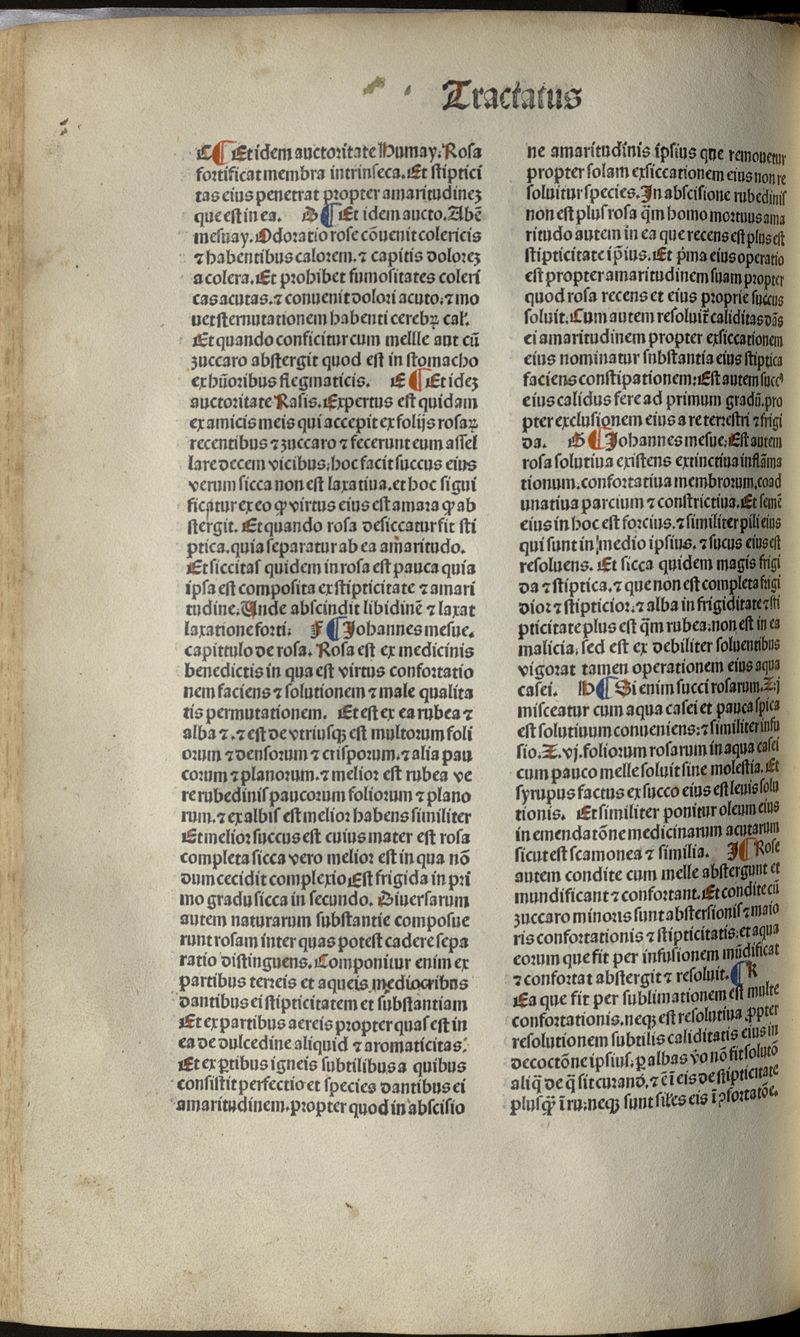 Tractatus
C ¶ Et idem auctoritate Humay. Rosa
fortificat membra intrinseca. Et stiptici
tas eius penetrat propter amaritudineꝫ
que est in ea. D ¶ Et idem aucto. Abē
mesuay. Odoratio rose cōuenit colericis
⁊ habentibus calorem. ⁊ capitis doloreꝫ
a colera. Et prohibet fumositates coleri
cas acutas. ⁊ conuenit dolori acuto: ⁊ mo
uet sternutationem habenti cerebꝝ cal'.
Et quando conficitur cum mellle aut cū
zuccaro abstergit quod est in stomacho
ex hūoribus flegmaticis. E ¶ Et ideꝫ
auctoritate Rasis. Expertus est quidam
ex amicis meis qui accepit ex folijs rosaꝝ
recentibus ⁊ zuccaro ⁊ fecerunt eum assel
lare decem vicibus: hoc facit succus eius
verum sicca non est laxatiua. et hoc signi
ficatur ex eo ꝙ virtus eius est amara ꝙ ab
stergit. Et quando rosa desiccatur fit sti
ptica. quia separatur ab ea amaritudo.
Et siccitas quidem in rosa est pauca quia
ipsa est composita ex stipticitate ⁊ amari
tudine. Unde abscindit libidinē ⁊ laxat
laxatione forti. F ¶ Johannes mesue.
capittulo de rosa. Rosa est ex medicinis
benedictis in qua est virtus confortatio
nem faciens ⁊ solutionem ⁊ male qualita
tis permutationem. Et est ex ea rubea ⁊
alba ⁊. ⁊ est de vtriusqꝫ est multorum foli
orum ⁊ densorum ⁊ crisporum. ⁊ alia pau
corum ⁊ planorum. ⁊ melior est rubea ve
re rubedinis paucorum foliorum ⁊ plano
rum. ⁊ ex albis est melior habens similiter
Et melior succus est cuius mater est rosa
completa sicca vero melior est in qua nō
dum cecidit complexio Est frigida in pri
mo gradu sicca in secundo. Diuersarum
autem naturarum substantie composue
runt rosam inter quas potest cadere sepa
ratio distinguens. Componitur enim ex
partibus terreis et aqueis mediocribus
dantibus ei stipticitatem et substantiam
Et ex partibus aereis propter quas est in
ea de dulcedine aliquid ⁊ aromaticitas.
Et ex ꝑtibus igneis subtilibus a quibus
consistit perfectio et species dantibus ei
amaritudinem. propter quod in abscisio
ne amaritudinis ipsius que remouetur
propter solam exsiccationem eius non re
soluitur species. In abscisione rubedinis
non est plus rosa q̄m homo mortuus ama
ritudo autem in ea que recens est plus est
stipticitate ip̄ius. Et p̄ma eius operatio
est propter amaritudinem suam propter
quod rosa recens et eius proprie succus
soluit. Cum autem resoluit̄ caliditas dās
ei amaritudinem propter exsiccationem
eius nominatur substantia eius stiptica
faciens constipationem: Est autem succꝰ
eius calidus fere ad primum gradū. pro
pter exclusionem eius a re terrestri ⁊ frigi
da. G ¶ Johannes mesue: Est autem
rosa solutiua existens extinctiua inflāma
tionum. confortatiua membrorum. coad
unatiua parcium ⁊ constrictiua. Et semē
eius in hoc est forcius. ⁊ similiter pili eius
qui sunt in medio ipsius. ⁊ sucus eius est
resoluens. Et sicca quidem magis frigi
da ⁊ stiptica. ⁊ que non est completa frigi
dior ⁊ stipticior: ⁊ alba in frigiditate ⁊ sti
pticitate plus est q̄m rubea: non est in ea
malicia. sed est ex debiliter soluentibus
vigorat tamen operationem eius aqua
casei. H ¶ Si enim succi rosarum. ℥. j
misceatur cum aqua casei et pauca spica
est solutiuum conueniens: ⁊ similiter infu
sio. ℥. vj. foliorum rosarum in aqua casei
cum pauco melle soluit sine molestia. Et
syrupus factus ex succo eius est leuis solu
tionis. Et similiter ponitur oleum eius
in emendatōne medicinarum acutarum
sicut est scamonea ⁊ similia. J ¶ Rose
autem condite cum melle abstergunt et
mundificant ⁊ confortant. Et condite cū
zuccaro minoris sunt abstersionis ⁊ maio
ris confortationis ⁊ stipticitatis: et aqua
eorum que fit per infusionem mūdificat
⁊ confortat abstergit ⁊ resoluit. ¶ K
Ea que fit per sublimationem est multe
confortationis. neqꝫ est resolutiua ꝓpter
resolutionem subtilis caliditatis eius in
decoctōne ipsius: ꝑ albas vo nō fit solutō
aliq̄ de q̄ sit curand̄. ⁊ ē ī eis de stipticitate
plusq̄ ī ru: neqꝫ sunt sil'es eis ī ꝯfortatōe.